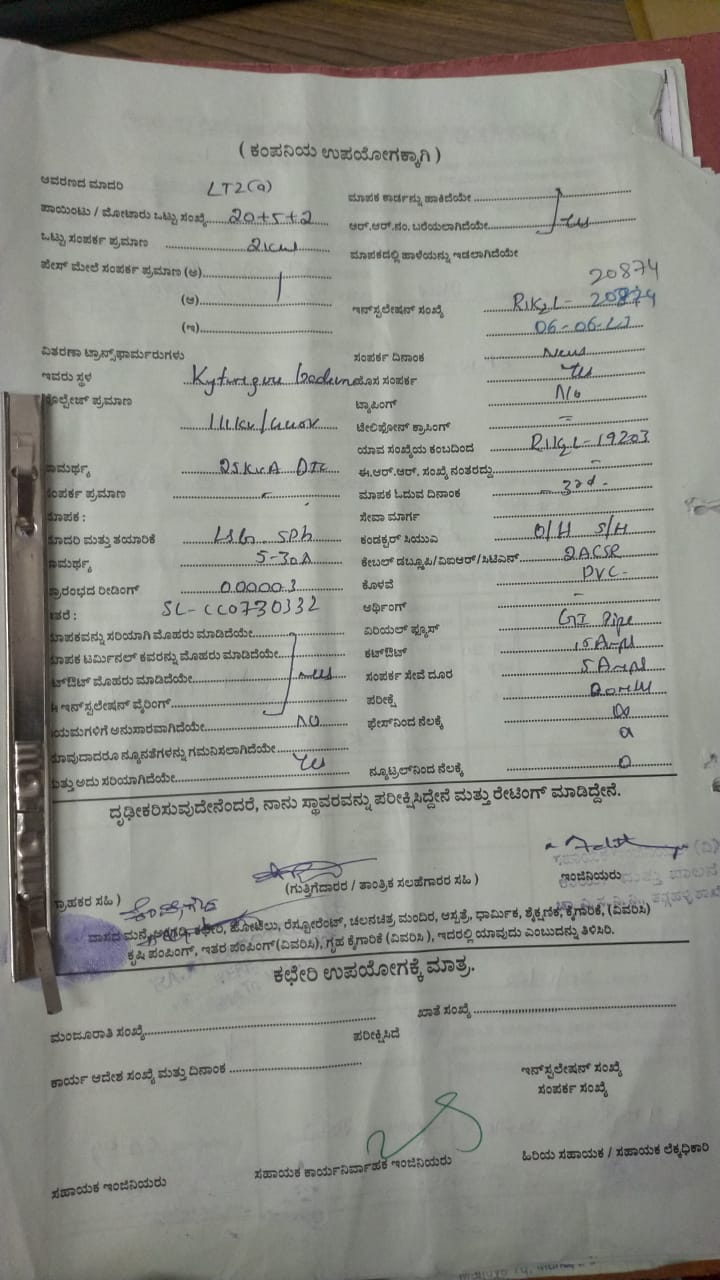 ( ಕಂಪನಿಯ ಉಪಯೋಗಕ್ಕಾಗಿ )
ಆವರಣದ ಮಾದರಿ LT2(a)
ಪಾಯಿಂಟು / ಮೋಟಾರು ಒಟ್ಟು ಸಂಖ್ಯೆ 20+5+2
ಒಟ್ಟು ಸಂಪರ್ಕ ಪ್ರಮಾಣ 2kw
ಪೇಸ್ ಮೇಲೆ ಸಂಪರ್ಕ ಪ್ರಮಾಣ (ಅ)
(ಆ)
(ಇ)
ವಿತರಣಾ ಟ್ರಾನ್ಸ್‌ಫಾರ್ಮರುಗಳು
ಇವರು ಸ್ಥಳ
ವೋಲ್ಟೇಜ್ ಪ್ರಮಾಣ
ಸಾಮರ್ಥ್ಯ 25KVA DTC
ಸಂಪರ್ಕ ಪ್ರಮಾಣ -
ಮಾಪಕ :
ಮಾದರಿ ಮತ್ತು ತಯಾರಿಕೆ
ಸಾಮರ್ಥ್ಯ 5-30A
ಪ್ರಾರಂಭದ ರೀಡಿಂಗ್ 00000.3
ಇತರೆ : SL-CC0730332
ಮಾಪಕವನ್ನು ಸರಿಯಾಗಿ ಮೊಹರು ಮಾಡಿದೆಯೇ
ಮಾಪಕ ಟರ್ಮಿನಲ್ ಕವರನ್ನು ಮೊಹರು ಮಾಡಿದೆಯೇ
ಕಟ್‌ಔಟ್ ಮೊಹರು ಮಾಡಿದೆಯೇ Yes
ಈ ಇನ್‌ಸ್ಟಲೇಷನ್ ವೈರಿಂಗ್
ನಿಯಮಗಳಿಗೆ ಅನುಸಾರವಾಗಿದೆಯೇ NO
ಯಾವುದಾದರೂ ನ್ಯೂನತೆಗಳನ್ನು ಗಮನಿಸಲಾಗಿದೆಯೇ
ಮತ್ತು ಅದು ಸರಿಯಾಗಿದೆಯೇ Yes
ಮಾಪಕ ಕಾರ್ಡನ್ನು ಹಾಕಿದೆಯೇ
ಆರ್.ಆರ್.ನಂ. ಬರೆಯಲಾಗಿದೆಯೇ Yes
ಮಾಪಕದಲ್ಲಿ ಹಾಳೆಯನ್ನು ಇಡಲಾಗಿದೆಯೇ
20874
ಇನ್‌ಸ್ಟಲೇಷನ್ ಸಂಖ್ಯೆ 20874
ಸಂಪರ್ಕ ದಿನಾಂಕ
ಹೊಸ ಸಂಪರ್ಕ Yes
ಟ್ಯಾಪಿಂಗ್ No
ಟೆಲಿಫೋನ್ ಕ್ರಾಸಿಂಗ್ -
ಯಾವ ಸಂಖ್ಯೆಯ ಕಂಬದಿಂದ
ಈ.ಆರ್.ಆರ್. ಸಂಖ್ಯೆ ನಂತರದ್ದು -
ಮಾಪಕ ಓದುವ ದಿನಾಂಕ 3rd -
ಸೇವಾ ಮಾರ್ಗ
ಕಂಡಕ್ಟರ್ ಸಿಯುಎ O/H S/H
ಕೇಬಲ್ ಡಬ್ಲೂಪಿ/ವಿಐಆರ್/ಸಿಟಿಎಸ್ 2ACSR
ಕೊಳವೆ PVC -
ಅರ್ಥಿಂಗ್ -
ಏರಿಯಲ್ ಫ್ಯೂಸ್ GI Pipe
ಕಟ್‌ಔಟ್ 15 Amps
ಸಂಪರ್ಕ ಸೇವೆ ದೂರ 5 Amps
ಪರೀಕ್ಷೆ
ಫೇಸ್‌ನಿಂದ ನೆಲಕ್ಕೆ
ನ್ಯೂಟ್ರಲ್‌ನಿಂದ ನೆಲಕ್ಕೆ
ದೃಢೀಕರಿಸುವುದೇನೆಂದರೆ, ನಾನು ಸ್ಥಾವರವನ್ನು ಪರೀಕ್ಷಿಸಿದ್ದೇನೆ ಮತ್ತು ರೇಟಿಂಗ್ ಮಾಡಿದ್ದೇನೆ.
ಗ್ರಾಹಕರ ಸಹಿ ) (ಗುತ್ತಿಗೆದಾರರ / ತಾಂತ್ರಿಕ ಸಲಹೆಗಾರರ ಸಹಿ ) ಇಂಜಿನಿಯರು
ವಾಸದ ಮನೆ, ಅಂಗಡಿ, ಕಛೇರಿ, ಹೋಟೆಲು, ರೆಸ್ಟೋರೆಂಟ್, ಚಲನಚಿತ್ರ ಮಂದಿರ, ಆಸ್ಪತ್ರೆ, ಧಾರ್ಮಿಕ, ಶೈಕ್ಷಣಿಕ, ಕೈಗಾರಿಕೆ, (ವಿವರಿಸಿ)
ಕೃಷಿ ಪಂಪಿಂಗ್, ಇತರ ಪಂಪಿಂಗ್(ವಿವರಿಸಿ), ಗೃಹ ಕೈಗಾರಿಕೆ (ವಿವರಿಸಿ ), ಇದರಲ್ಲಿ ಯಾವುದು ಎಂಬುದನ್ನು ತಿಳಿಸಿರಿ.
ಕಛೇರಿ ಉಪಯೋಗಕ್ಕೆ ಮಾತ್ರ.
ಮಂಜೂರಾತಿ ಸಂಖ್ಯೆ ಖಾತೆ ಸಂಖ್ಯೆ
ಪರೀಕ್ಷಿಸಿದೆ
ಕಾರ್ಯ ಆದೇಶ ಸಂಖ್ಯೆ ಮತ್ತು ದಿನಾಂಕ
ಇನ್‌ಸ್ಟಲೇಷನ್ ಸಂಖ್ಯೆ
ಸಂಪರ್ಕ ಸಂಖ್ಯೆ
ಸಹಾಯಕ ಇಂಜಿನಿಯರು ಸಹಾಯಕ ಕಾರ್ಯನಿರ್ವಾಹಕ ಇಂಜಿನಿಯರು ಹಿರಿಯ ಸಹಾಯಕ / ಸಹಾಯಕ ಲೆಕ್ಕಧಿಕಾರಿ